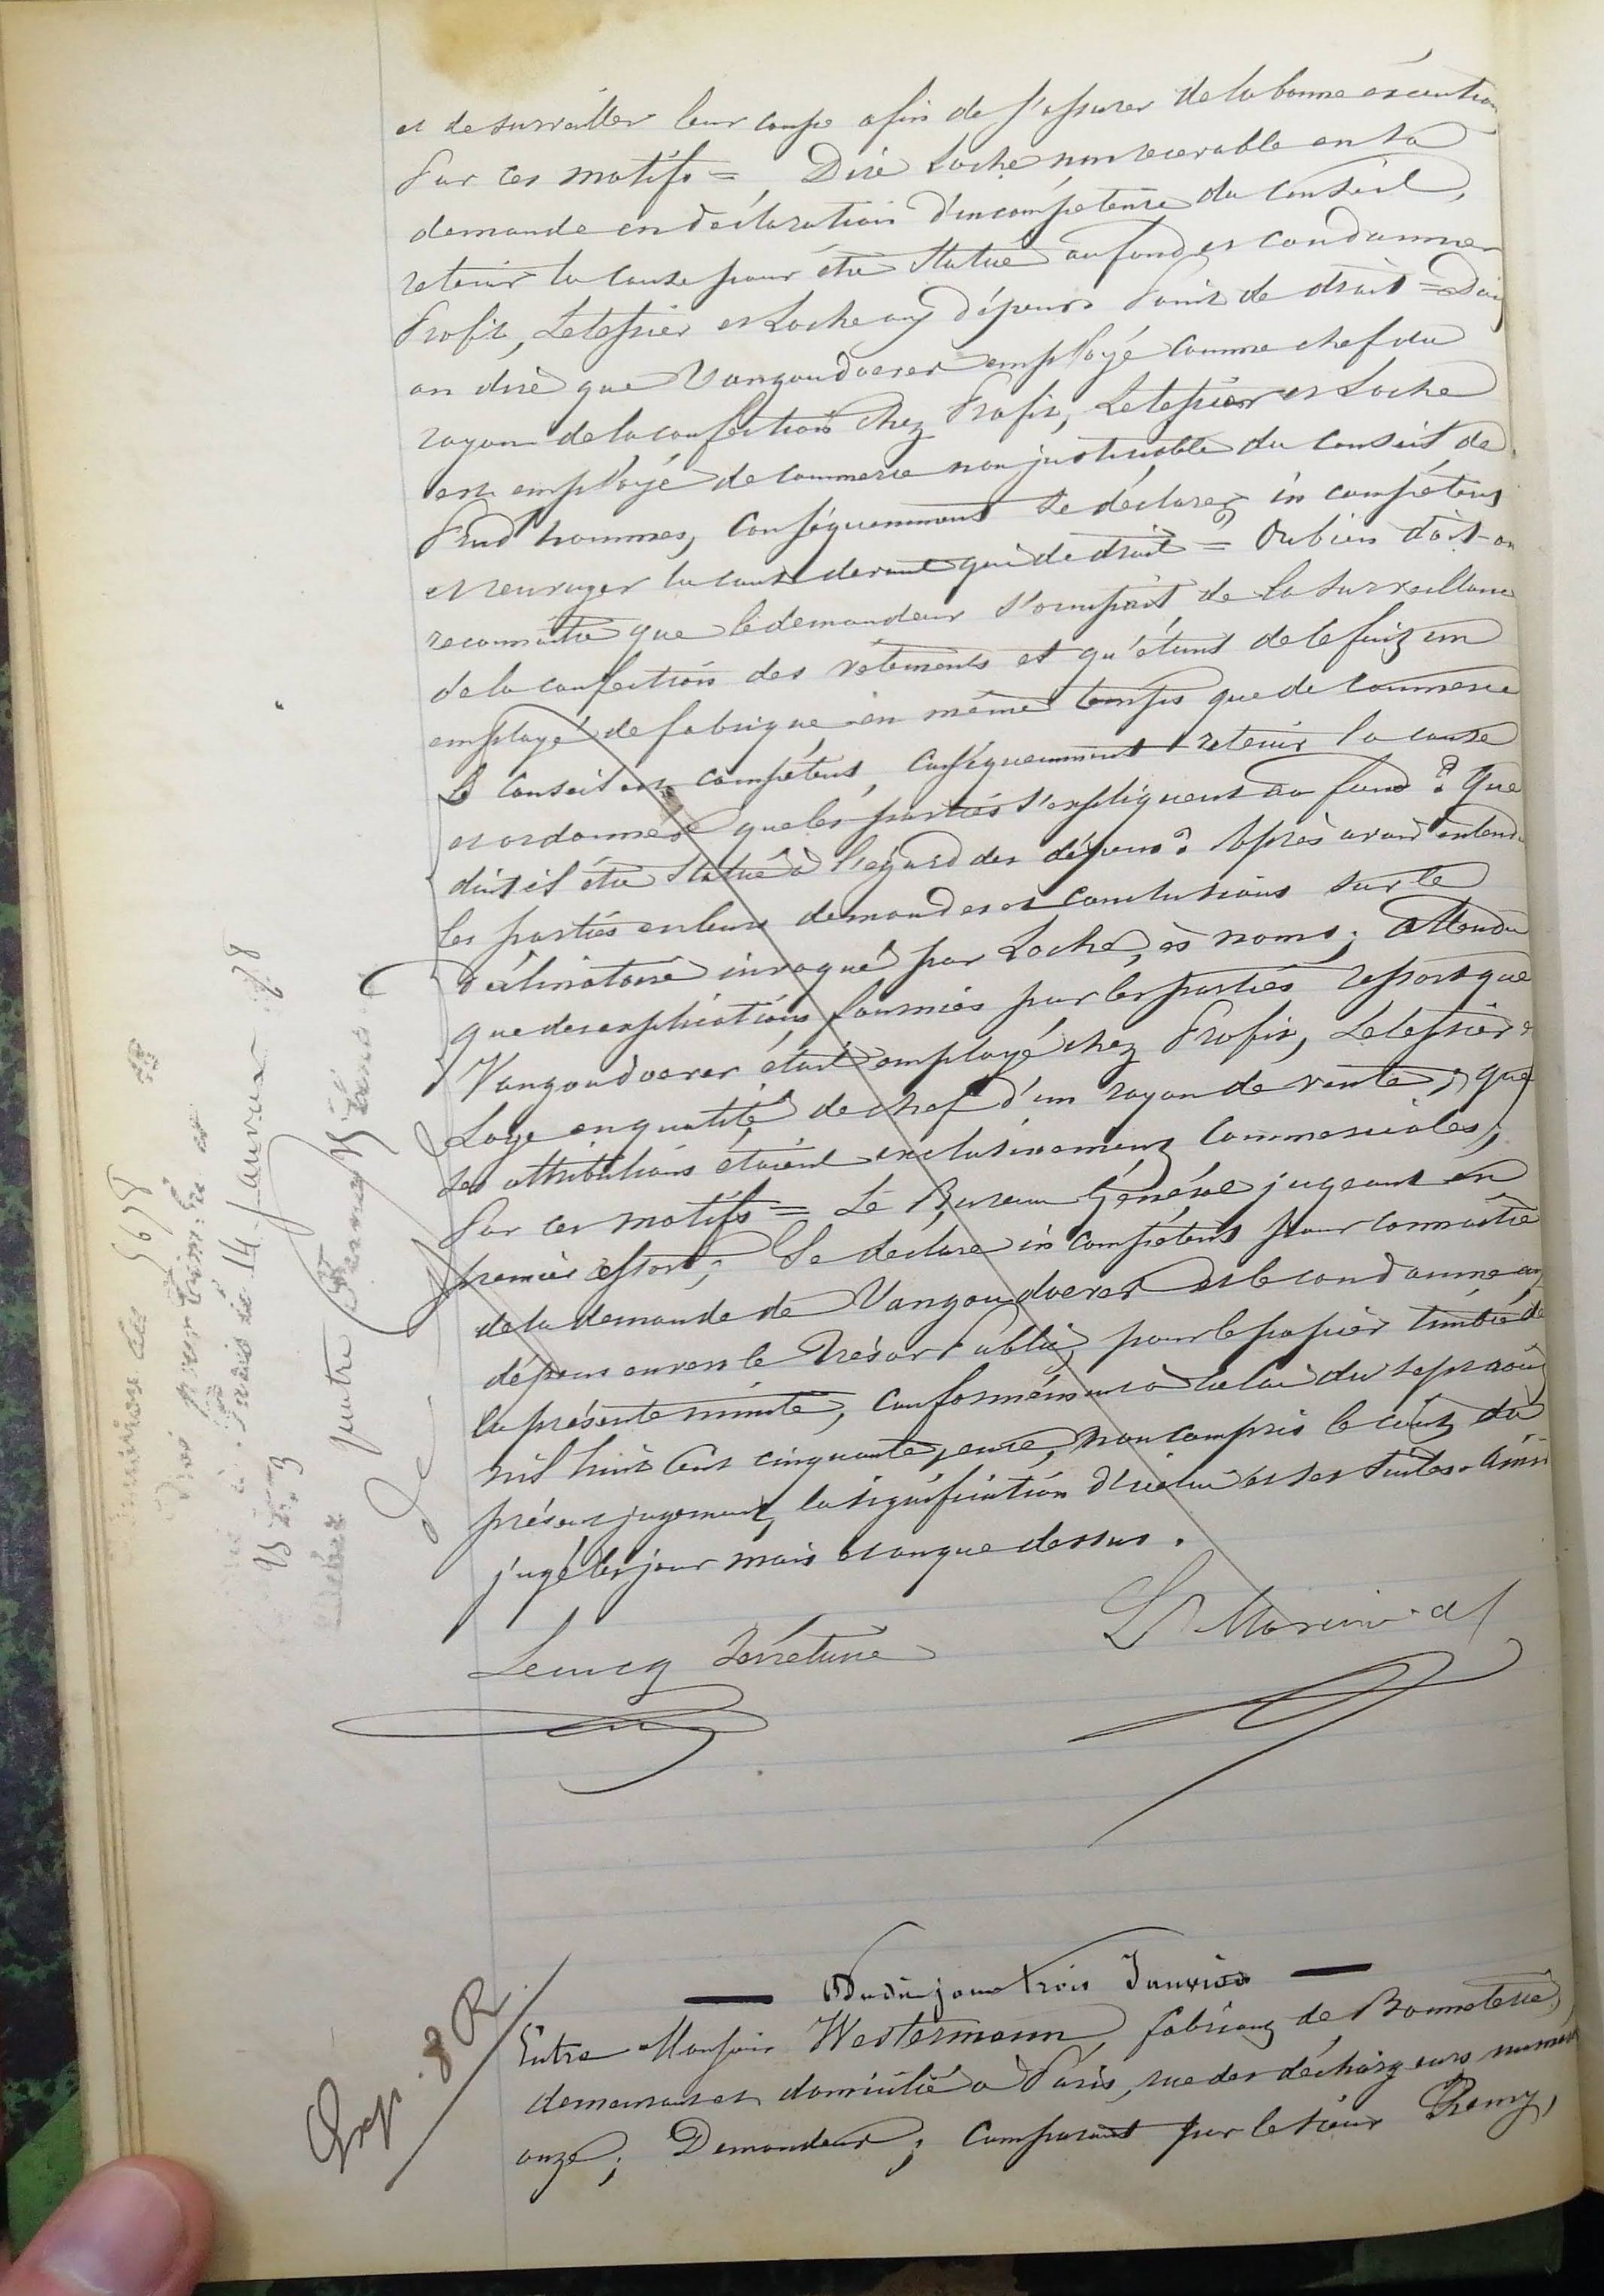 et de surveiller leur coupe afin de s'assurer de la bonne exécution
Par ces motifs = Dire Loche non recevable en sa
demande en déclaration d'incompétence du Conseil,
retenir la cause pour être statué au fond et condamner
Profit, Letessier et Loche aux dépens. Point de droit = Doit
on dire que Vangoudoever employé comme chef du
rayon de la confection chez Profit, Letessier et Loche
est employé de commerce non justiciable du Conseil de
Prud'hommes, conséquemment se déclarer incompétent
et renvoyer la cause devant qui de droit = Ou bien doit-on
reconnaître que le demandeur s'occupait de la surveillance
de la confection des vêtements et qu'étant de le fait un
employé de fabrique en même temps que de commerce
le Conseil est compétent, conséquemment retenir la cause
et ordonner que les parties s'expliquent au fond ? Que
doit-il être statué à l'égard des dépens ? Après avoir entendu
les parties en leurs demandes et conclusions sur le
déclinatoire invoqué par Loche, ès noms ; Attendu
que des explications fournies par les parties ressort que
Vangoudoever était employé chez Profit, Letessier &
Loge en qualité de chef d'un rayon de vente ; que
ses attributions étaient exclusivement commerciales ;
Par ces motifs = Le Bureau Général jugeant en
premier ressort ; Se déclare incompétent pour connaître
de la demande de Vangoudoever et le condamne aux
dépens envers le Trésor Public, pour le papier timbré de
la présente minute, conformément à la loi du sept août
mil huit cent cinquante, ence, non compris le coût du
présent jugement, la signification d'icelui et ses suites. Ainsi
jugé les jour mois et an que dessus.
Lecucq Secrétaire
Morin
Dudit jour trois Janvier
Entre Monsieur Westermann, fabricant de Bonneterie,
demeurant et domicilié à Paris, rue des déchargeurs numéro
onze ; Demandeur ; Comparant par le sieur Remy,
14 Janvier
8 R